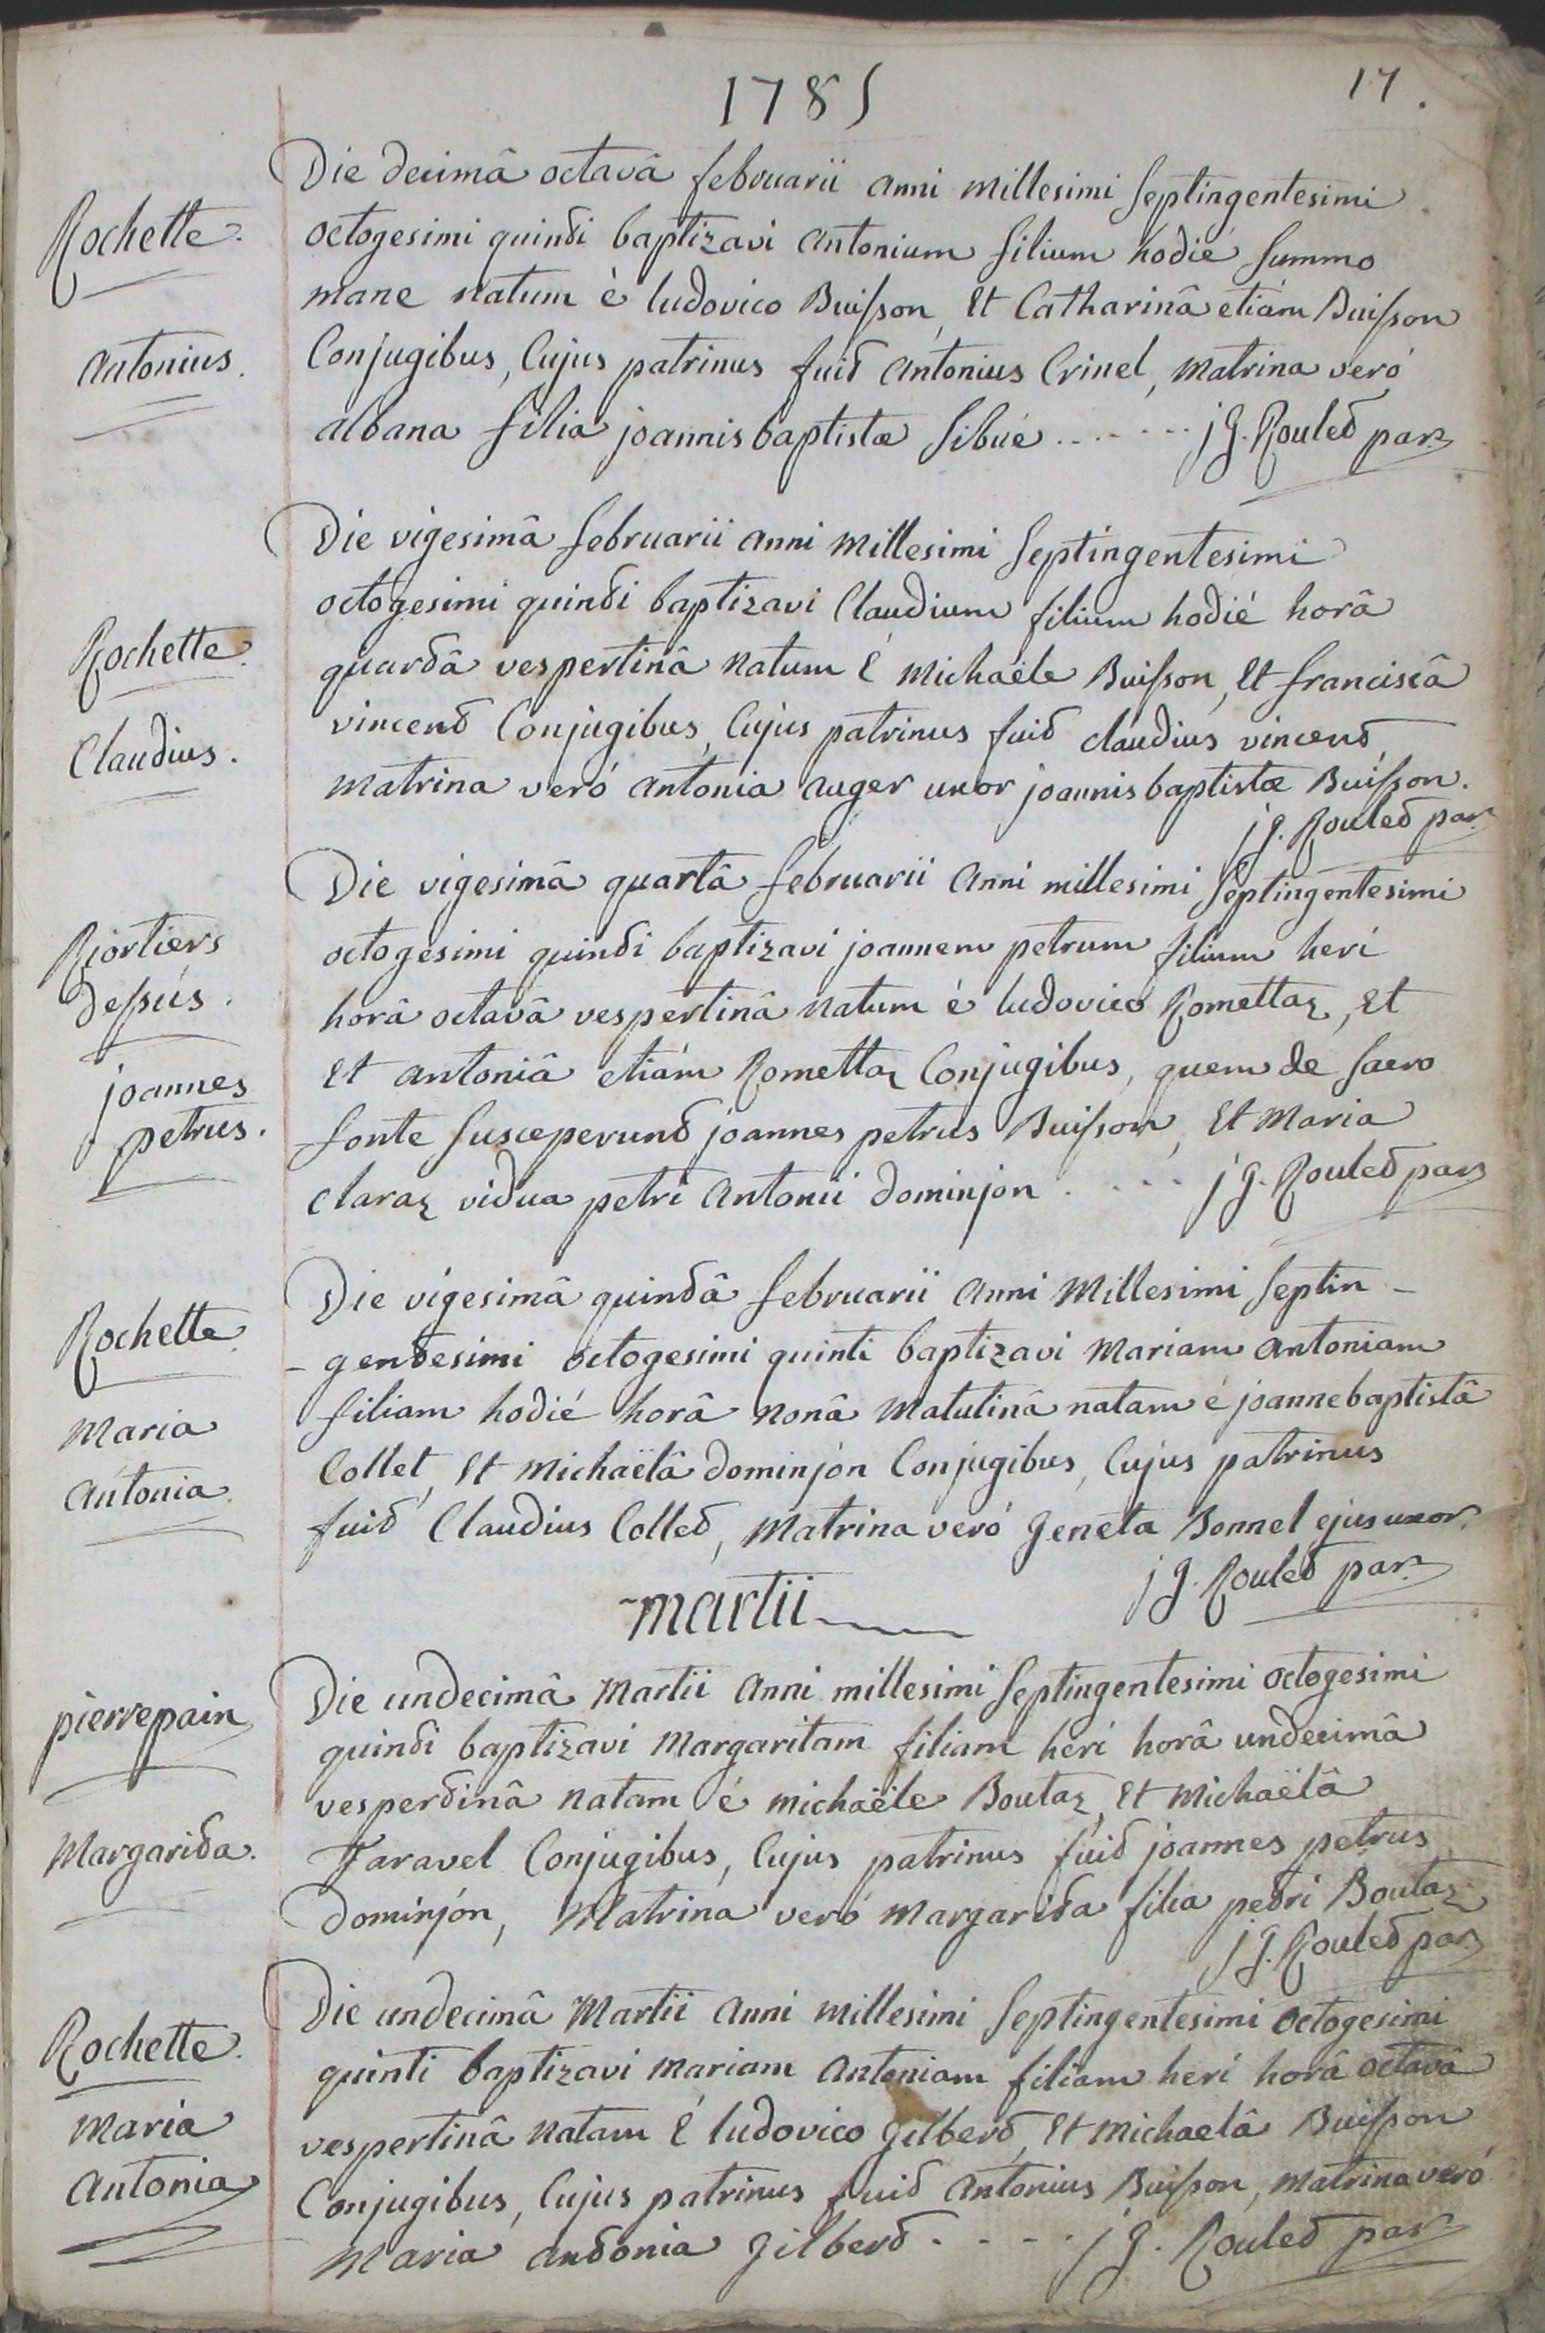 1785
17.
Rochette.
Antonius.
Die decimâ octavâ februarii anni millesimi septingentesimi
octogesimi quinti baptizavi Antonium filium hodiè summo
mane natum è ludovico Buisson, Et Catharinâ etiàm Buisson
Conjugibus, Cujus patrinus fuit Antonius Crinel, matrina verò
albana filia joannisbaptistæ Sibué ....... j G. Roulet par.
Rochette.
Claudius.
Die vigesimâ februarii anni millesimi septingentesimi
octogesimi quinti baptizavi Claudium filium hodiè horâ
quartâ vespertinâ natum è michaële Buisson, Et franciscâ
vincent Conjugibus, Cujus patrinus fuit claudius vincent,
matrina verò antonia auger uxor joannisbaptistæ Buisson.
j g. Roulet par.
dessùs.
joannes
petrus.
Die vigesimâ quartâ februarii anni millesimi septingentesimi
octogesimi quinti baptizavi joannem petrum filium heri
horâ octavâ vespertinâ natum è ludovico Romettaz, Et
Et antoniâ etiàm Romettaz Conjugibus, quem de sacro
fonte susceperunt joannes petrus Buisson, Et maria
claraz vidua petri antonii dominjon ..... j g. Roulet par
Rochette.
maria
antonia.
Die vigesimâ quintâ februarii anni millesimi septin-
-gentesimi octogesimi quinti baptizavi mariam antoniam
filiam hodiè horâ nonâ matutinâ natam è joannebaptistâ
Collet, Et michaëlâ dominjòn Conjugibus, Cujus patrinus
fuit Claudius Collet, matrina verò geneta Bonnel ejus uxor.
j g. Roulet par.
martii
pierrepain
Margarita.
Die undecimâ martii anni millesimi septingentesimi octogesimi
quinti baptizavi margaritam filiam heri horâ undecimâ
vespertinâ natam è michaële Boutaz, Et michaëlâ
Taravel Conjugibus, Cujus patrinus fuit joannes petrus
dominjòn, matrina verò margarita filia petri Boutaz.
j g. Roulet par
Rochette.
maria
antonia
Die undecimâ martii anni millesimi septingentesimi octogesimi
quinti baptizavi mariam antoniam filiam heri horâ octavâ
vespertinâ natam è ludovico gilbert, Et michaelâ Buisson
Conjugibus, Cujus patrinus fuit antonius Buisson, matrina verò
maria antonia gilbert ..... j g. Roulet par